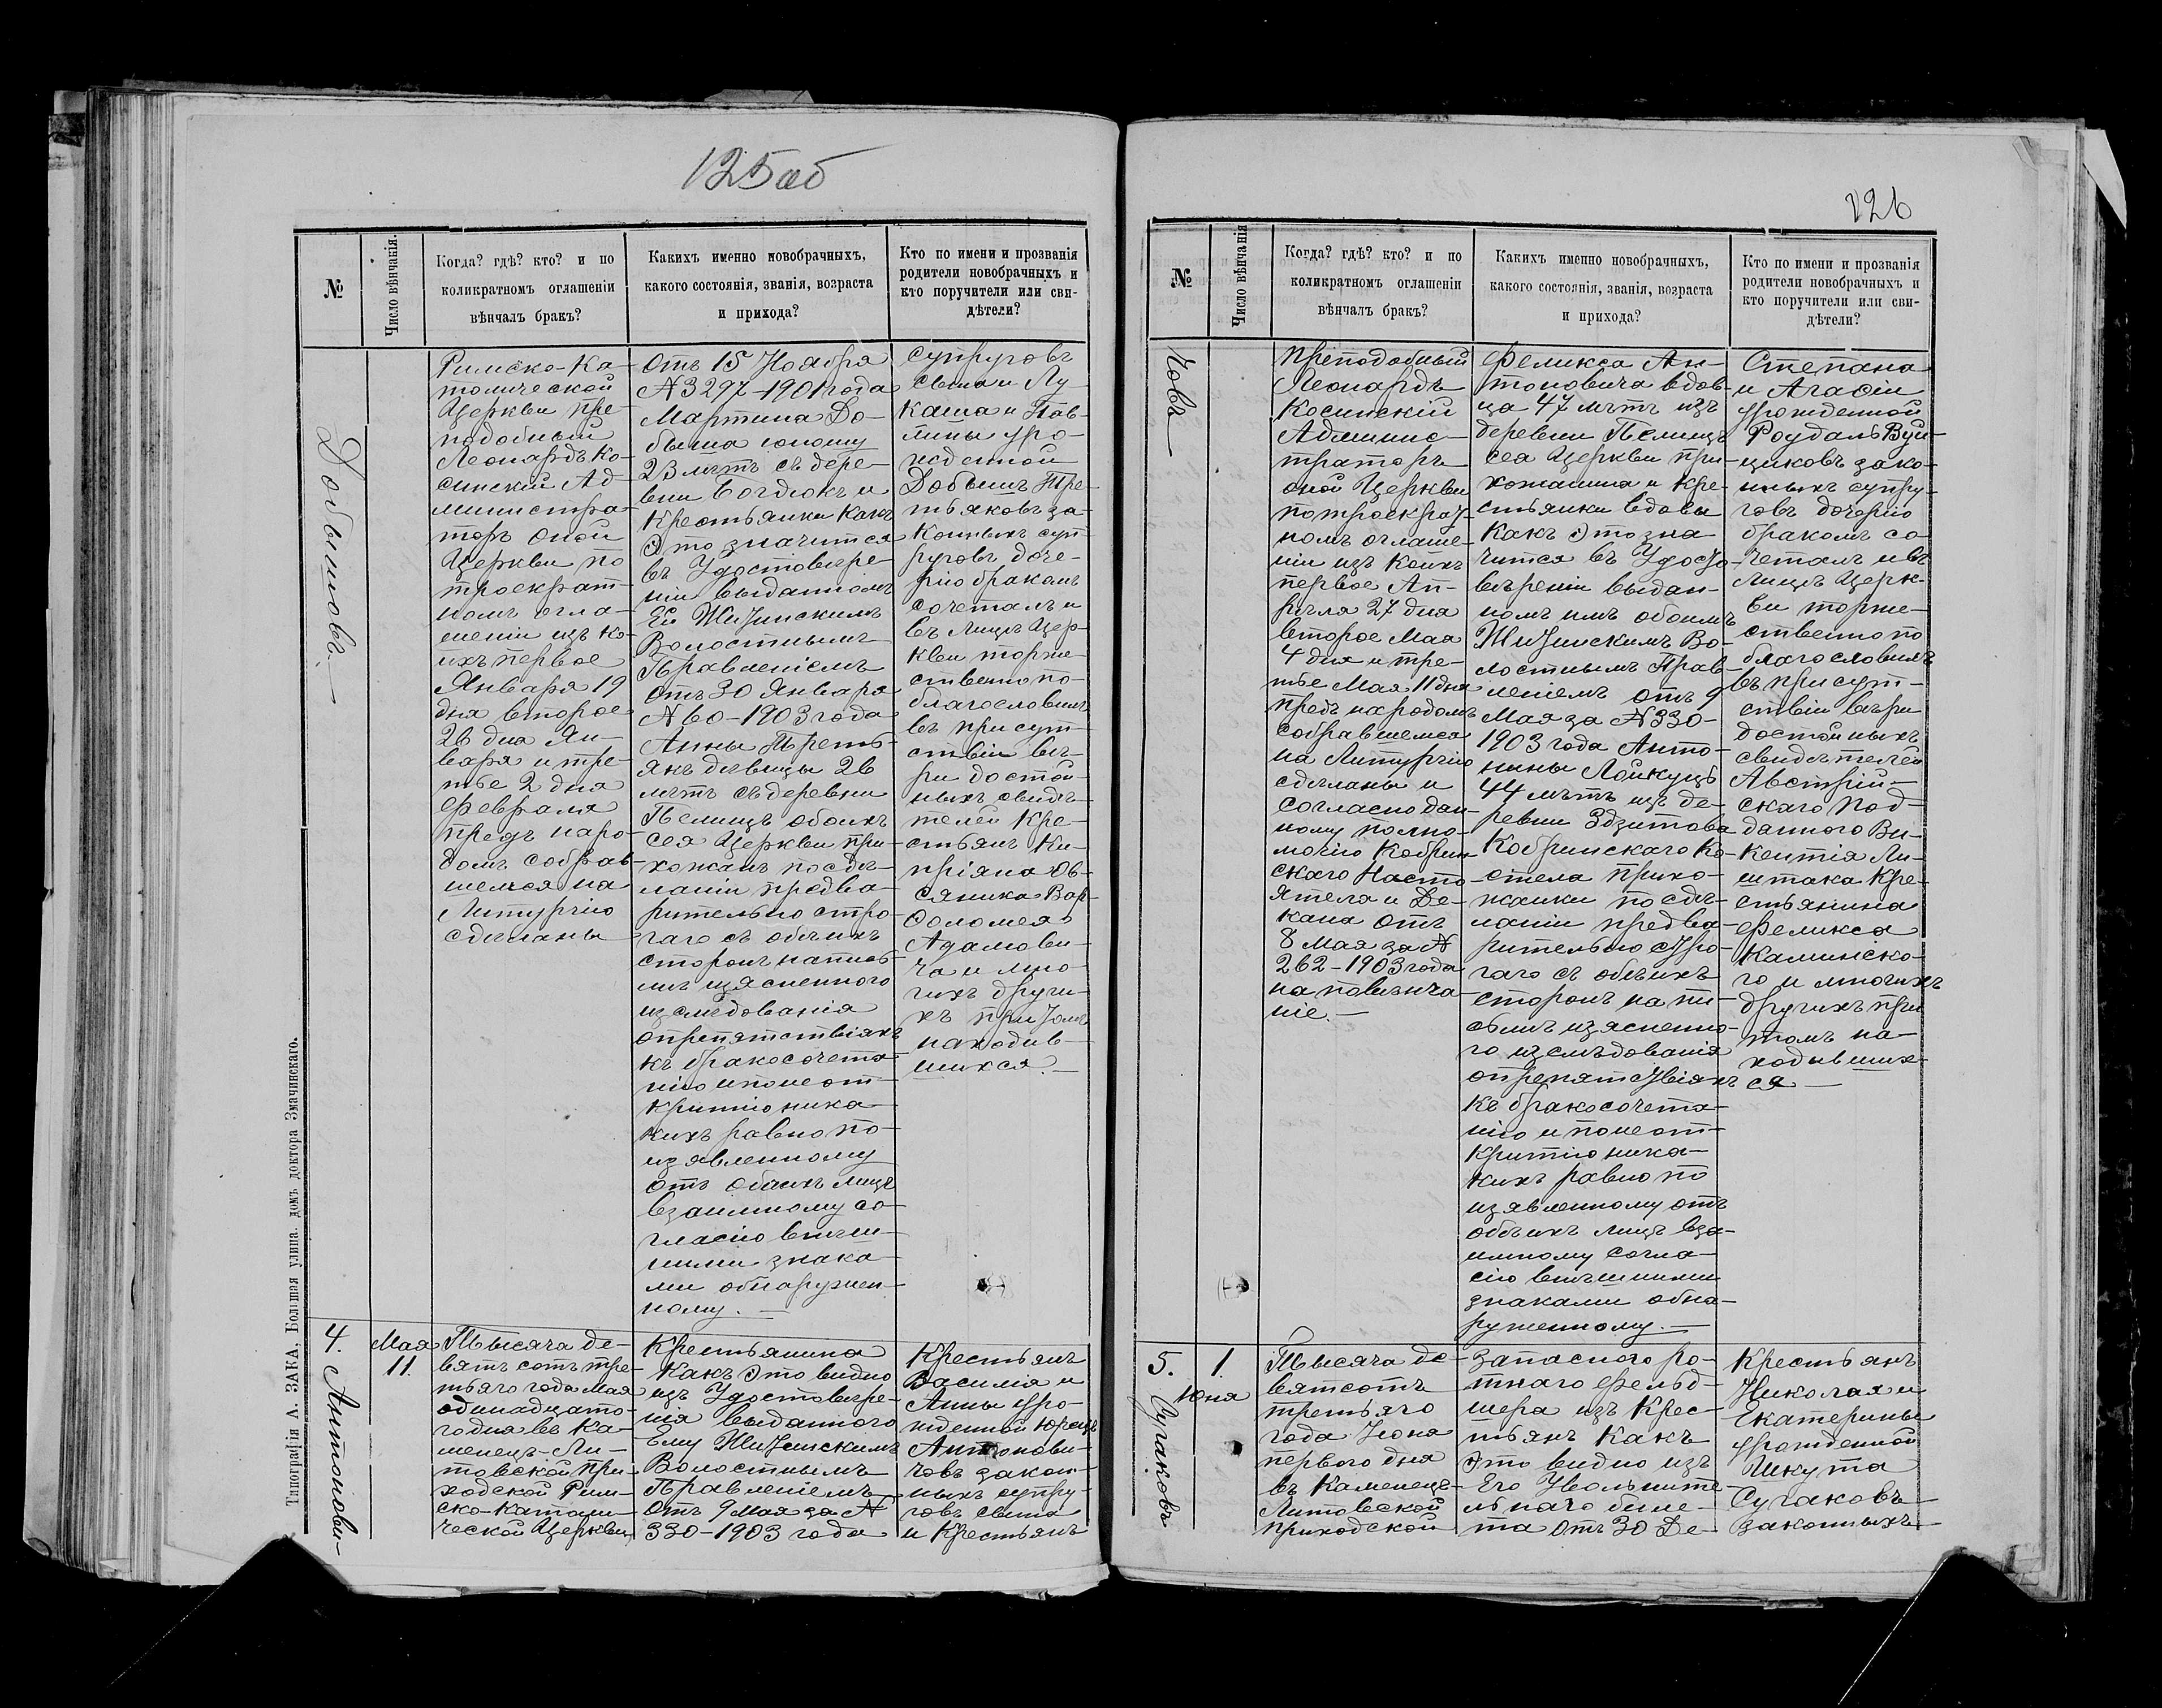 125об
№
Число вѣнчанія.
Когда? гдѣ? кто? и по
коликратномъ оглашеніи
вѣнчалъ бракъ?
Какихъ именно новобрачныхъ,
какого состоянія, званія, возраста
и прихода?
Кто по имени и прозванія
родители новобрачныхъ и
кто поручители или сви-
дѣтели?
Добышовъ.
Римско-Ка-
толической
Церкви пре-
подобный
Леонардъ Ко-
синскій Ад-
министра-
торъ оной
Церкви по
троекрат-
номъ огла-
шеніи изъ ко-
ихъ первое
Января 19
дня второе
26 дня Ян-
варя и тре-
тье 2 дня
Февраля
предъ наро-
домъ собрав-
шемся на
Литургію
сдѣланы
отъ 15 Ноября
№ 3297-1901 года
Мартина До-
быша юношу
23 лѣтъ съ дере-
вни Богдюкъ и
Крестьянки какъ
это значится
въ Удостовѣре-
ніи выданномъ
Ей Житинскимъ
Волостнымъ
Правленіемъ
отъ 30 Января
№ 60-1903 года
Анны Треть-
якъ дѣвицы 26
лѣтъ съ деревни
Пелищъ обоихъ
сея Церкви при-
хожанъ по сдѣ-
ланіи предва-
рительно стро-
гаго съ обѣихъ
сторонъ напись-
мѣ изясненного
изслѣдованія
опрепятствіяхъ
къ бракосочета-
нію и поне от-
критію ника-
кихъ равно по
изявленному
отъ обѣихъ лицъ
взаимному со-
гласію внѣш-
ними знака-
ми обнаружен-
ному.
супруговъ
сына и Лу-
каша и Пав-
лины уро-
жденной
Добышъ Тре-
тьяковъ за-
конныхъ суп-
руговъ доче-
рію бракомъ
сочеталъ и
въ Лицѣ Цер-
кви торже-
ственно по-
благословилъ
въ присут-
ствіи вѣ-
ри достой-
ныхъ свидѣ-
телей Кре-
стьянъ Ки-
пріяна Ов-
сяника Вар-
фоломея
Адамови-
ча и мно-
гихъ други-
хъ при томъ
находив-
шихся.
4.
Антонови-
Мая
11.
Тысяча де-
вятъ сотъ тре-
тьяго года Мая
одинадцато-
годня въ Ка-
менецъ-Ли-
товской При-
ходской Рим-
ско-Католи-
ческой Церкви
Крестьянина
какъ это видно
изъ Удостовѣре-
нія выданного
Ему Житинскимъ
Волостнымъ
Правленіемъ
отъ 9 Мая за №
330-1903 года
Крестьянъ
Василія и
Анны уро-
жденной Юрецъ
Антонови-
човъ закон-
ныхъ супру-
говъ сына
и Крестьянъ
Типографія А. ЗАКА, Большая улица, домъ доктора Змачинскаго.
126
№
Число вѣнчанія
Когда? гдѣ? кто? и по
коликратномъ оглашеніи
вѣнчалъ бракъ?
Какихъ именно новобрачныхъ,
какого состоянія, званія, возраста
и прихода?
Кто по имени и прозванія
родители новобрачныхъ и
кто поручители или сви-
дѣтели?
човъ
преподобный
Леонардъ
Косинскій
Админис-
траторъ
оной Церкви
по троекрат-
номъ оглаше-
ніи изъ коихъ
первое Ап-
рѣля 27 дня
второе Мая
4 дня и тре-
тье Мая 11 дня
предъ народомъ
собравшемся
на Литургію
сдѣланы и
согласно дан-
ному полно-
мочію Кобрин-
скаго Насто-
ятеля и Де-
кана отъ
8 Мая за №
262-1903 года
на повѣнча-
ніе.
Феликса Ан-
тоновича вдов-
ца 47 лѣтъ изъ
деревни Пелищъ
сея Церкви при-
хожанина и Кре-
стьянки вдовы
какъ это зна-
чится въ Удосто-
вѣреніи выдан-
номъ имъ обоимъ
Житинскимъ Во-
лостнымъ Прав-
леніемъ отъ 9
Мая за № 330-
1903 года Анто-
нины Лойкуцъ
44 лѣтъ изъ де-
ревни Здзитова
Кобринскаго Ко-
стела прихо-
жанки по сдѣ-
ланіи предва-
рительно стро-
гаго съ обѣихъ
сторонъ на пи-
сьмѣ изясненно-
го изслѣдованія
опрепятствіяхъ
къ бракосочета-
нію и поне от-
критію ника-
кихъ равно по
изявленному отъ
обѣихъ лицъ вза-
имному согла-
сію внѣшними
знаками обна-
руженному.
Степана
и Агасіи
урожденной
Роудаль Вуй-
циковъ зако-
нныхъ супру-
говъ дочерію
бракомъ со-
четалъ и въ
Лицѣ Церк-
ви торже-
ственно по
благословилъ
въ присут-
ствіи вѣри
достойныхъ
свидѣтелей
Австрій-
скаго под-
данного Ви-
кентія Ли-
штака Кре-
стьянина
Феликса
Каминско-
го и многихъ
другихъ при
томъ на-
ходывших-
ся
5.
Сугаковъ
1.
Юня
Тысяча де-
вятсотъ
третьяго
года Іюня
первого дня
въ Каменецъ-
Литовской
приходской
запасного ро-
тнаго фельд-
шера изъ Крес-
тьянъ какъ
это видно изъ
Его Увольните-
льнаго биле-
та отъ 30 Де-
Крестьянъ
Николая и
Екатерины
урожденной
Шкута
Сугаковъ
законныхъ